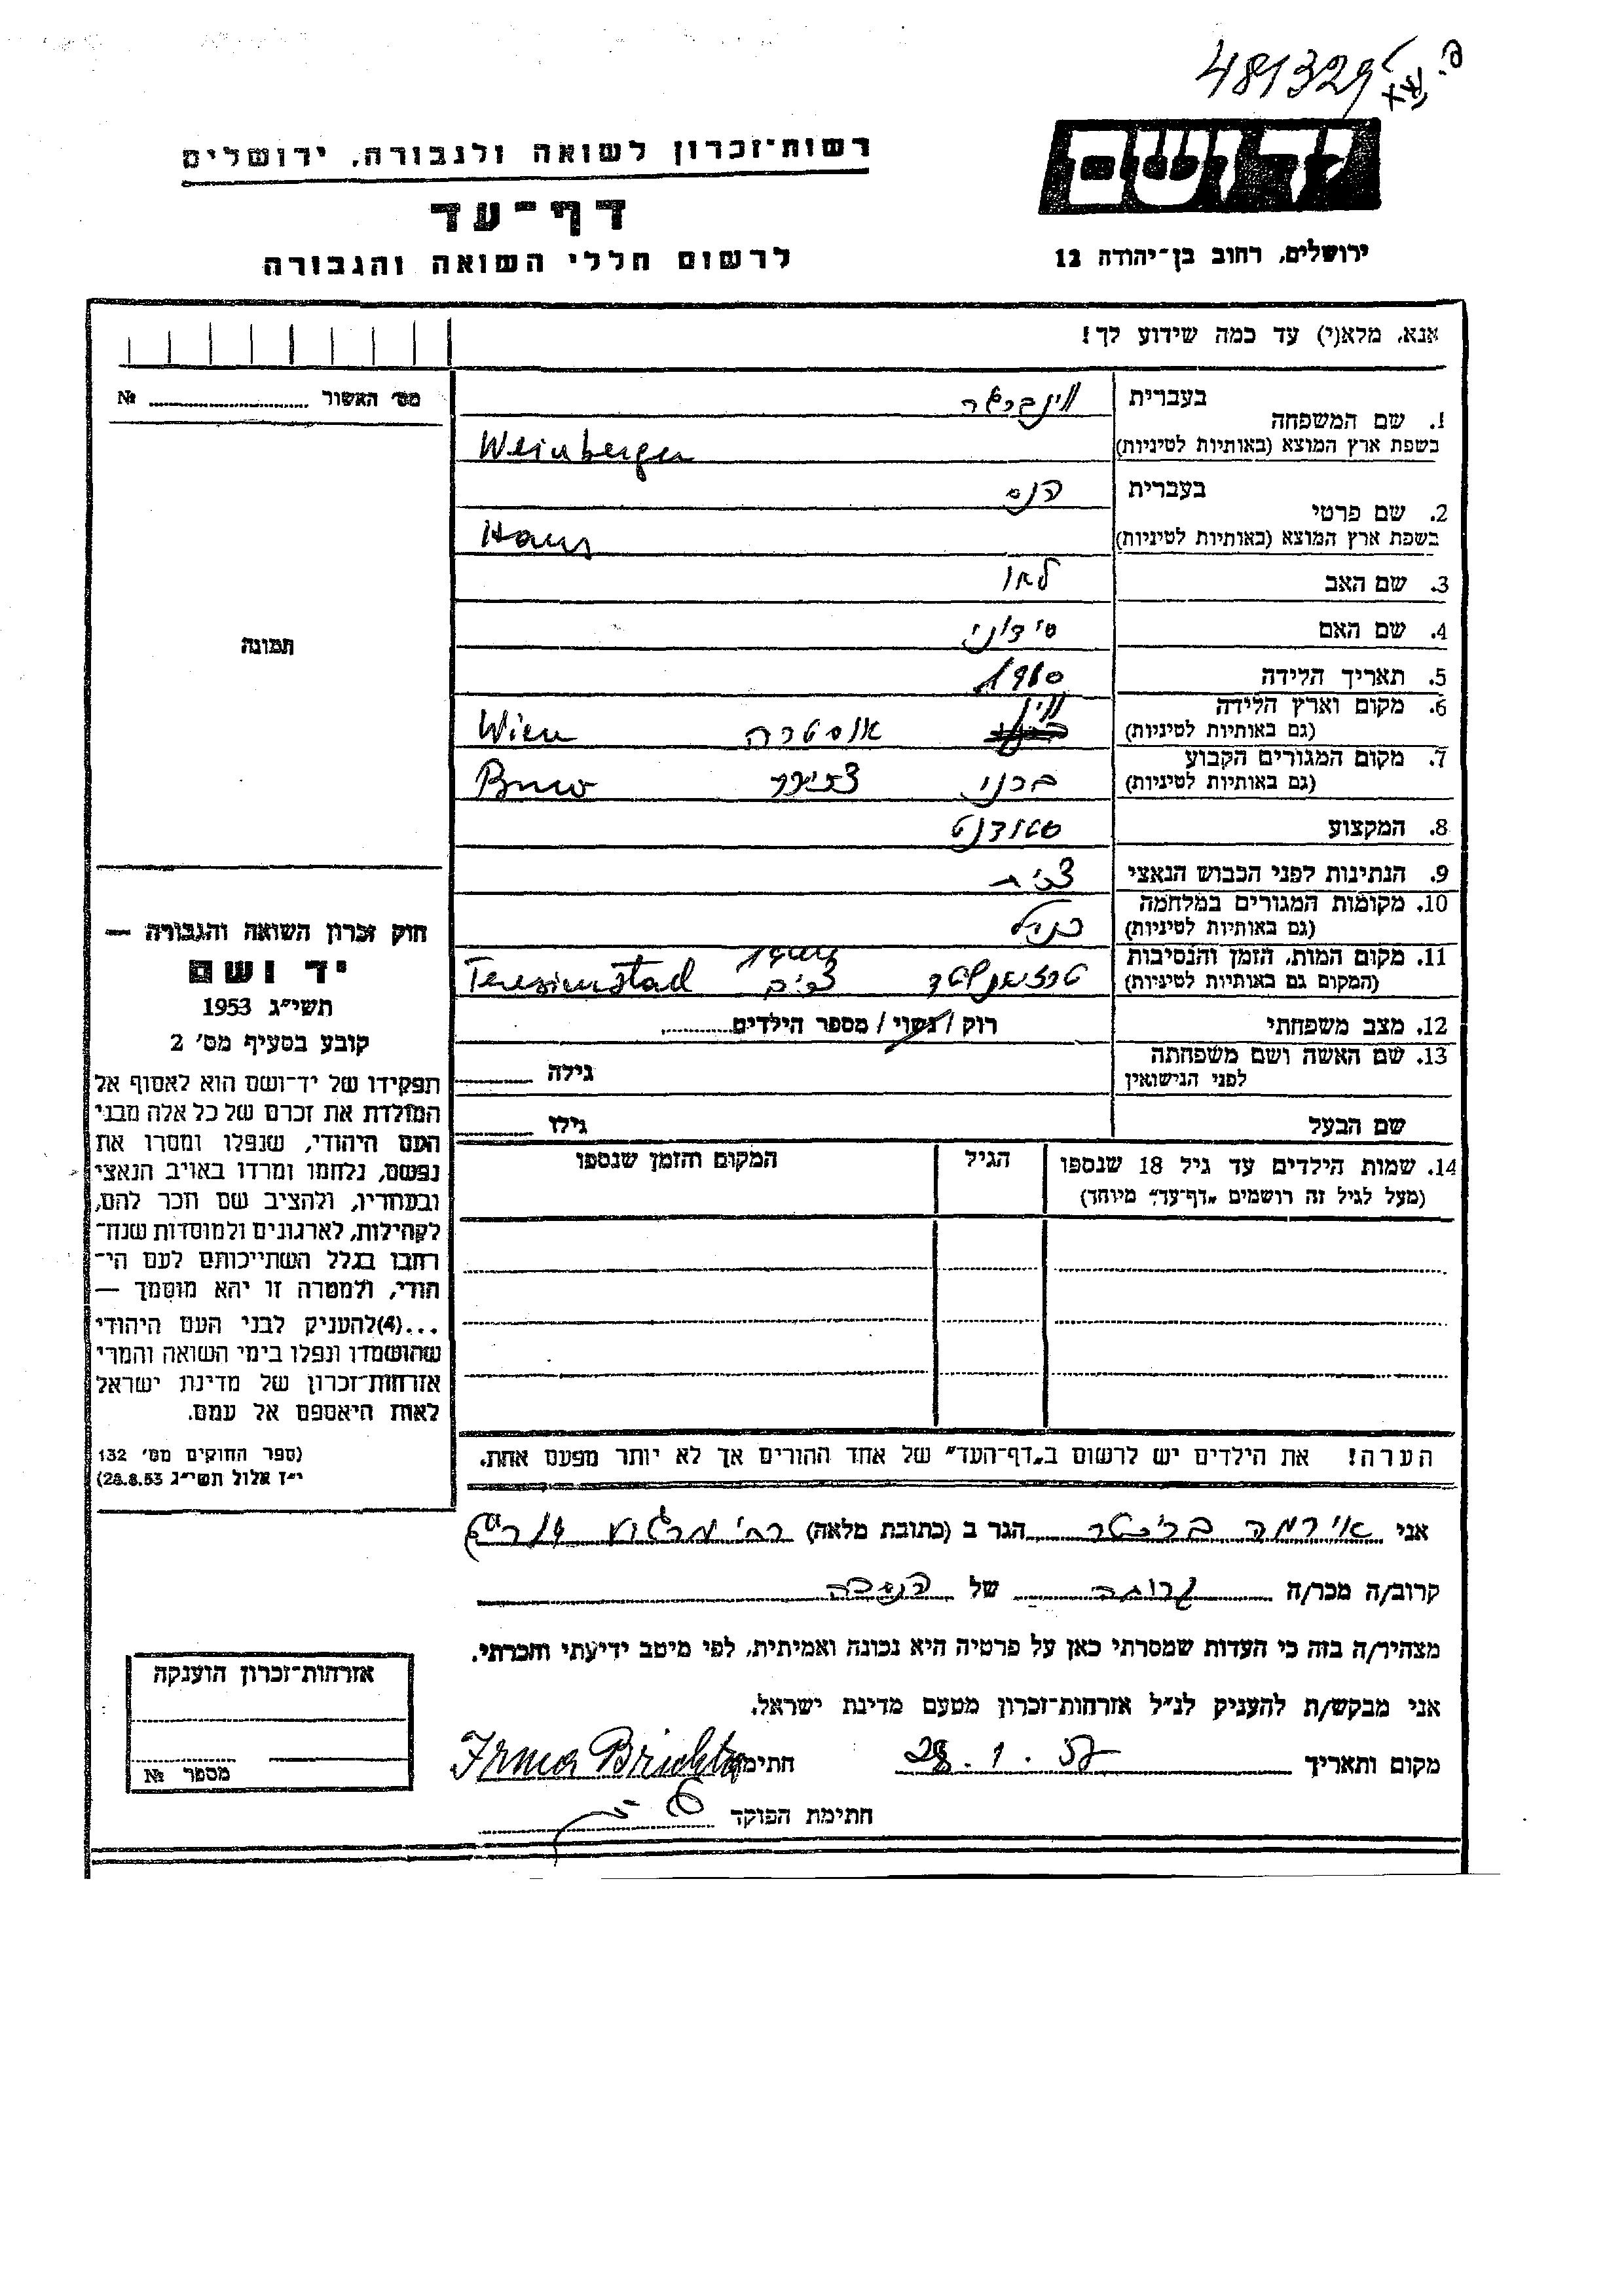 481329
רשות־זכרון לשואה ולגבורה, ירושלים
דף־עד
לרשום חללי השואה והגבורה
יד ושם
ירושלים, רחוב בן־יהודה 12
אנא, מלא(י) עד כמה שידוע לך!
מס׳ האשור № ....................
1. שם המשפחה
בעברית
בשפת ארץ המוצא (באותיות לטיניות) Weinberger
2. שם פרטי
בעברית הנס
בשפת ארץ המוצא (באותיות לטיניות) Hans
3. שם האב לאו
4. שם האם סידוני
5. תאריך הלידה 1910
6. מקום וארץ הלידה (גם באותיות לטיניות) וין אוסטרה Wien
7. מקום המגורים הקבוע (גם באותיות לטיניות) ברנו Brno
8. המקצוע סטודנט
9. הנתינות לפני הכבוש הנאצי צ׳כית
10. מקומות המגורים במלחמה (גם באותיות לטיניות) כנ״ל
11. מקום המות, הזמן והנסיבות (המקום גם באותיות לטיניות) 1944 Teresienstad
12. מצב משפחתי רוק / נשוי / מספר הילדים............
13. שם האשה ושם משפחתה לפני הנישואין גילה
שם הבעל גילו
14. שמות הילדים עד גיל 18 שנספו (מעל לגיל זה רושמים „דף־עד״ מיוחד)
הגיל
המקום והזמן שנספו
הערה! את הילדים יש לרשום ב„דף־העד״ של אחד ההורים אך לא יותר מפעם אחת.
תמונה
חוק זכרון השואה והגבורה —
יד ושם
תשי״ג 1953
קובע בסעיף מס׳ 2
תפקידו של יד־ושם הוא לאסוף אל
המולדת את זכרם של כל אלה מבני
העם היהודי, שנפלו ומסרו את
נפשם, נלחמו ומרדו באויב הנאצי
ובעוזריו, ולהציב שם וזכר להם,
לקהילות, לארגונים ולמוסדות שנח־
רבו בגלל השתייכותם לעם הי־
הודי, ולמטרה זו יהא מוסמך —
...(4)להעניק לבני העם היהודי
שהושמדו ונפלו בימי השואה והמרי
אזרחות־זכרון של מדינת ישראל
לאות היאספם אל עמם.
(ספר החוקים מס׳ 132
י״ז אלול תשי״ג 28.8.53)
אני אירמה בריכטר הגר ב (כתובת מלאה)
קרוב/ה מכר/ה קרובה של הנספה
מצהיר/ה בזה כי העדות שמסרתי כאן על פרטיה היא נכונה ואמיתית, לפי מיטב ידיעתי והכרתי.
אני מבקש/ת להעניק לנ״ל אזרחות־זכרון מטעם מדינת ישראל.
מקום ותאריך 28.1.57 חתימה Irma Brichta
חתימת הפוקד
אזרחות־זכרון הוענקה
מספר №